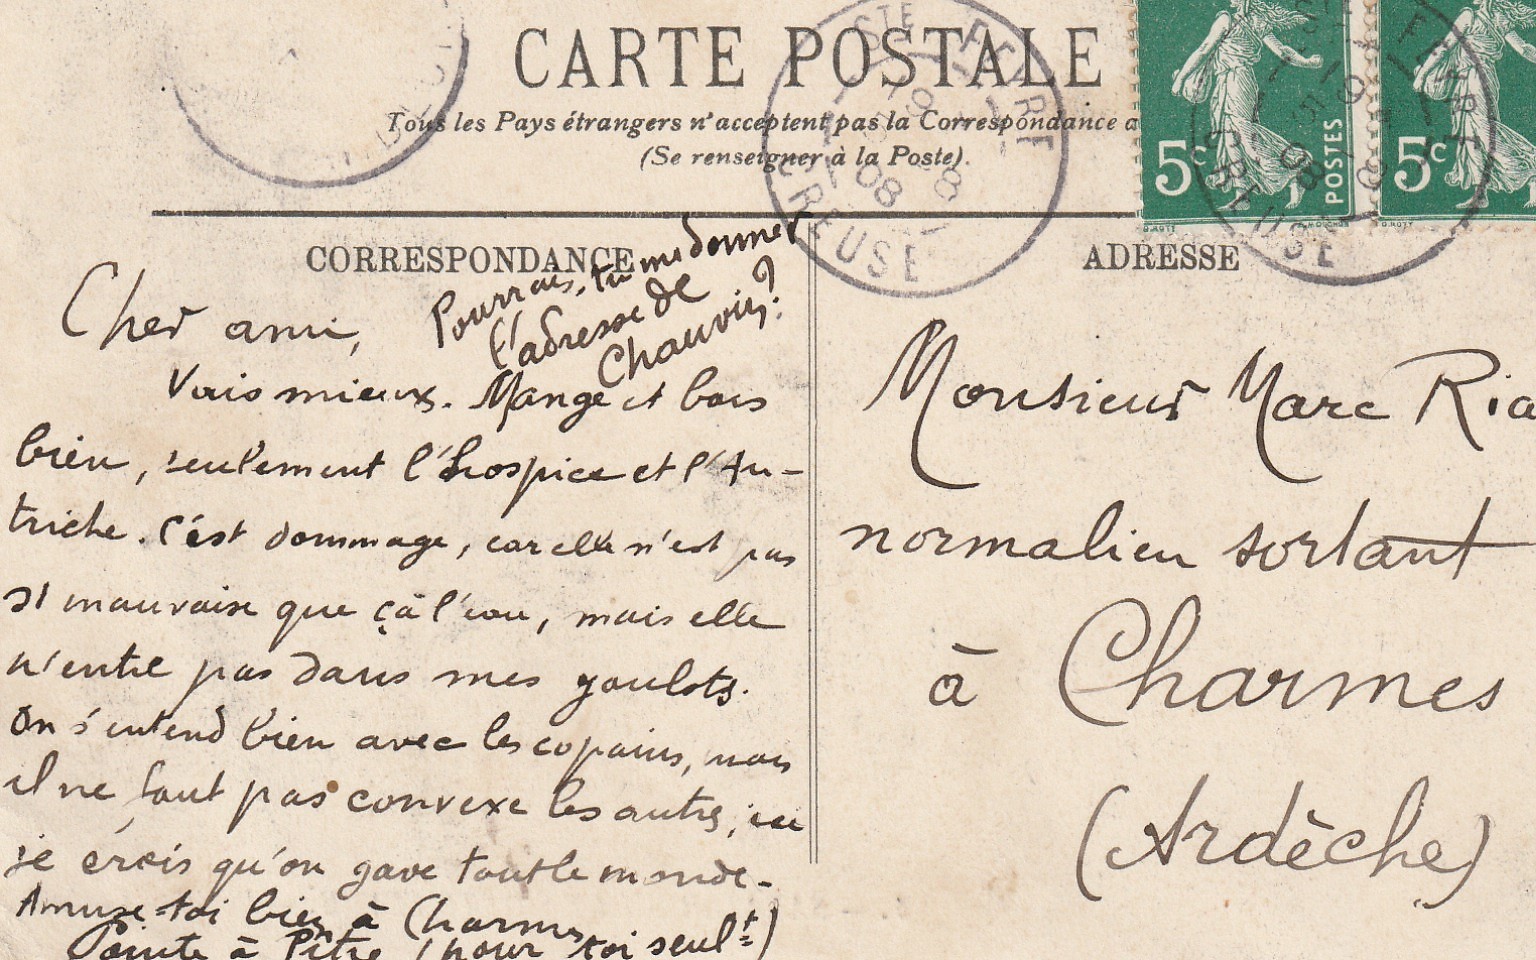 CARTE POSTALE
Tous les Pays étrangers n'acceptent pas la Correspondance a
(Se renseigner à la Poste).
5c POSTES
5c
STE FEYRE
CREUSE
08
CORRESPONDANCE
Pourrais-tu me donner
l'adresse de
Chauvin?
Cher ami,
Vais mieux. Mange et bois
bien, seulement l'hospice et l'Au-
triche. C'est dommage, car elle n'est pas
si mauvaise que çà l'eau, mais elle
n'entre pas dans mes goulots.
On s'entend bien avec les copains, mais
il ne faut pas convexe les autres, ici
je crois qu'on gave tout le monde.
Amuse-toi bien à Charmes
Pointe à Pitre (pour toi seult)
ADRESSE
Monsieur Marc Ria
normalien sortant
à Charmes
(Ardèche)